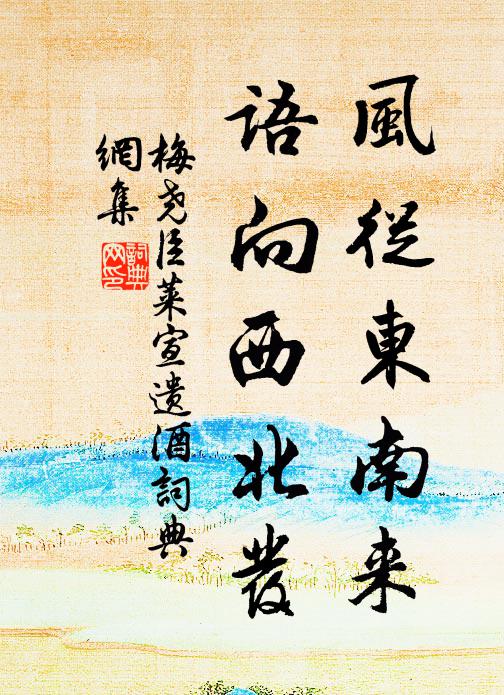 風從東南来
語向西北發
梅尧臣莱宣遗酒詞典
網集
詞典
网印